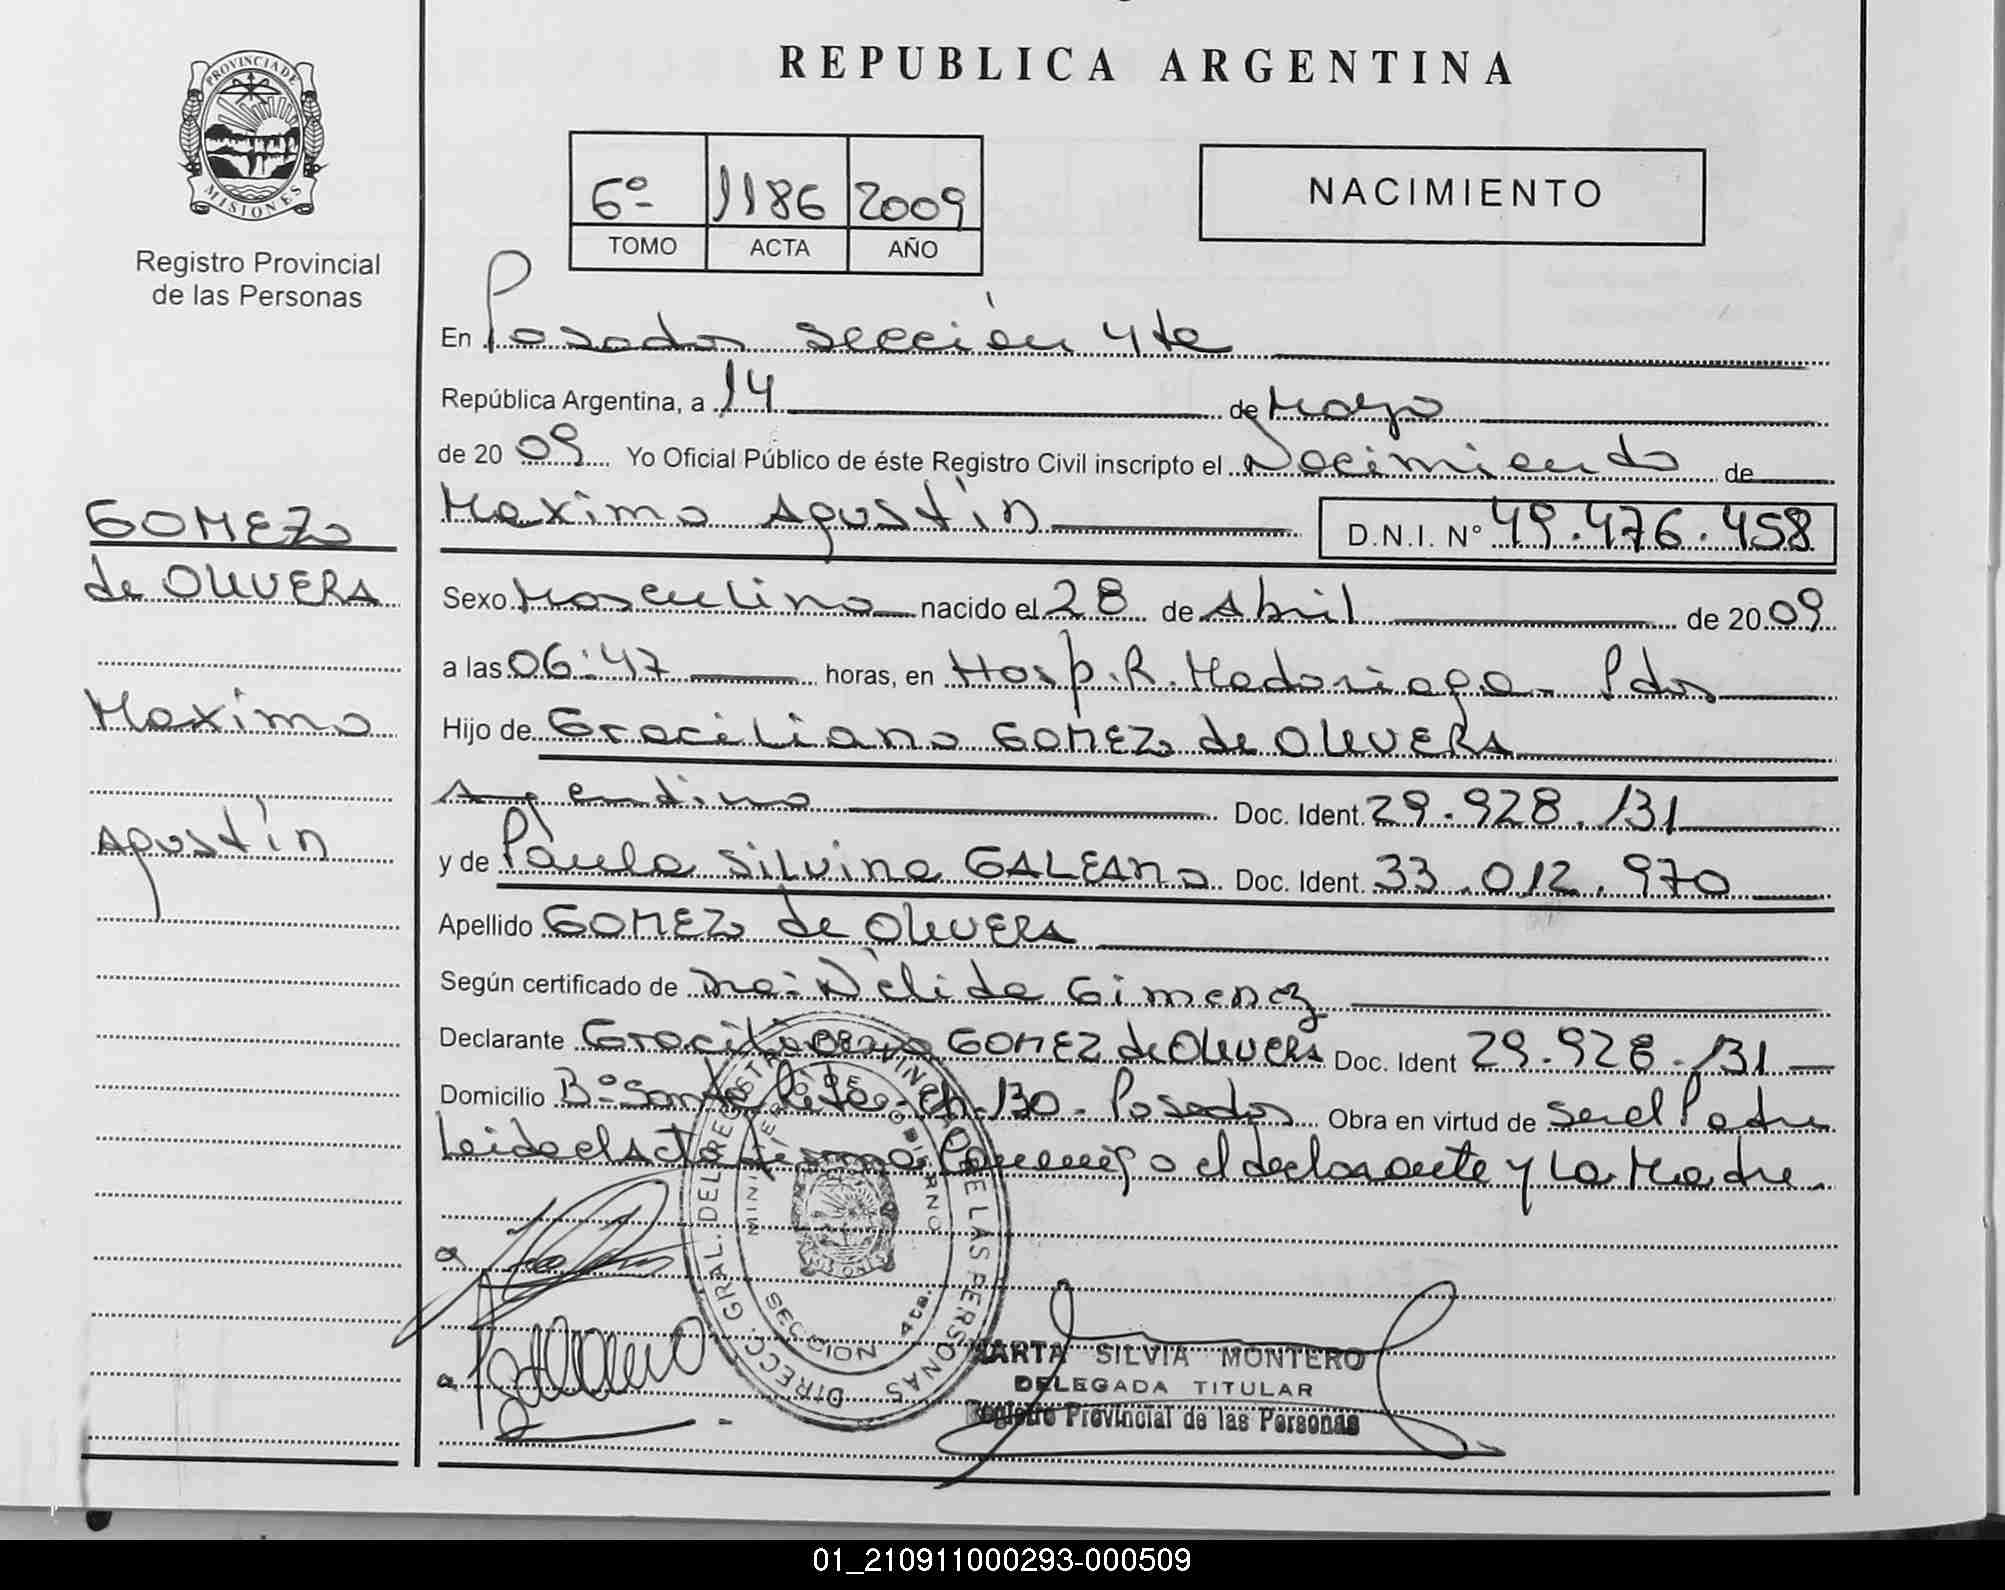 REPUBLICA ARGENTINA
PROVINCIA DE
MISIONES
Registro Provincial
de las Personas
6º 1186 2009
TOMO ACTA AÑO
NACIMIENTO
En Posadas sección 4ta
República Argentina, a 14 de Mayo
de 20 09 Yo Oficial Público de éste Registro Civil inscripto el Nacimiento de
Maximo Agustín D.N.I. Nº 49.476.458
GOMEZ
de OLIVERA
Maximo
Agustín
Sexo Masculino nacido el 28 de Abril de 20 09
a las 06:47 horas, en Hosp. R. Madariaga - Pdas
Hijo de Graciliano GOMEZ de OLIVERA
Argentino Doc. Ident. 29.928.131
y de Paula Silvina GALEANO Doc. Ident. 33.012.970
Apellido GOMEZ de OLIVERA
Según certificado de Dra: Nélida Gimenez
Declarante Graciliano GOMEZ de OLIVERA Doc. Ident 29.928.131
Domicilio Bº Santa Rita - Ch. 130 - Posadas Obra en virtud de ser el Padre
Leida el Acta firma Conmigo el declarante y La Madre.
DIRECC. GRAL. DEL REGISTRO PROVINCIAL DE LAS PERSONAS
MINISTERIO DE GOBIERNO
SECCION 4ta.
MARTA SILVIA MONTERO
DELEGADA TITULAR
Registro Provincial de las Personas
01_210911000293-000509